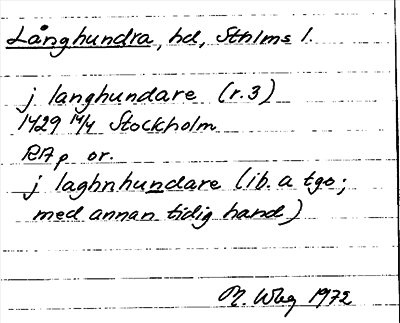 Långhundra, hd, Sthlms l.
j langhundare (r. 3)
1429 14/4 Stockholm
RAp or.
j laghnhundare (ib. a tgo;
med annan tidig hand)
M. Wbg 1972